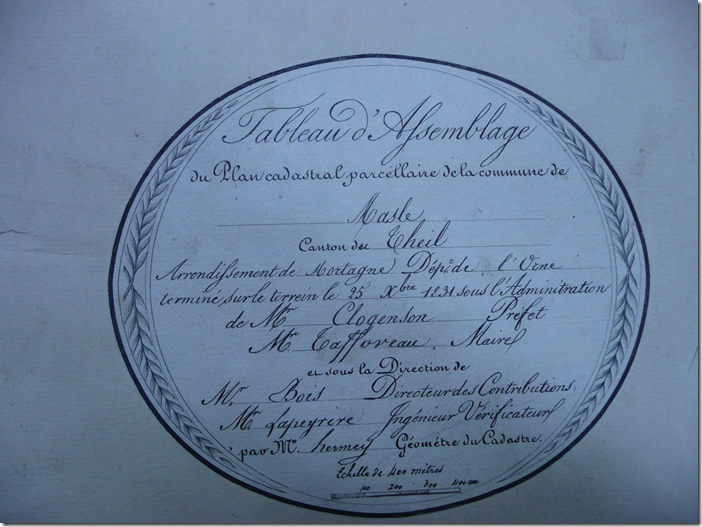 Tableau d'Assemblage
du Plan cadastral parcellaire de la commune de
Masle
Canton du Theil
Arrondissement de Mortagne Dép.t de l'Orne
terminé sur le terrein le 25 Xbre 1831 sous l'Adminitration
de Mr Clogenson Préfet
Mr Tafforeau Maire
et sous la Direction de
Mr Bois Directeur des Contributions
Mr Lapeyrère Ingénieur Vérificateur
par Mr hermey Géométre du Cadastre.
Echelle de 400 mètres
100 200 300 400 m